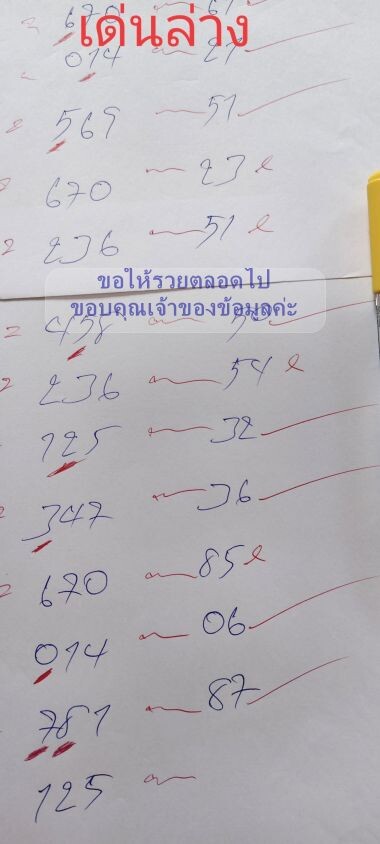 เด่นล่าง
014 21
569 51
670 23 ℓ
236 51 ℓ
ขอให้รวยตลอดไป
ขอบคุณเจ้าของข้อมูลค่ะ
458
236 54 ℓ
125 32
347 36
670 85 ℓ
014 06
781 87
125